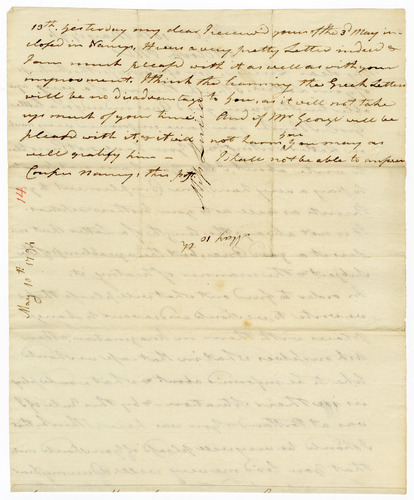 13th. yesterday my dear I received yours of the 3d May in-
closed in Nancys, It was a very pretty Letter indeed &
I am much pleased with it as well as with your
improvement. I think the learning the Greek Letters
will be no disadvantage to you, as it will not take
up much of your time. And if Mr George will be
pleased with it, as it will not harm you you may as
well gratify him — I shall not be able to answer
Cousin Nancy, this post
Miss
May 10th
14
May 10th 1794